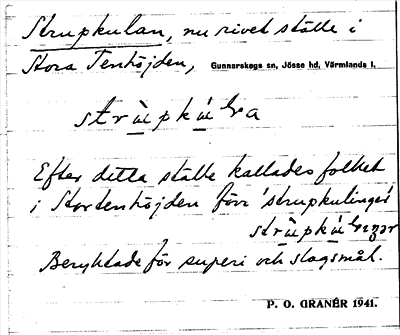 Strupkulan, nu rivet ställe i
Stora Tenhöjden, Gunnarskogs sn, Jösse hd, Värmlands l.
Efter detta ställe kallades folket
i Stortenhöjden förr 'strupkulinger'
Beryktade för superi och slagsmål.
P. O. GRANÉR 1941.